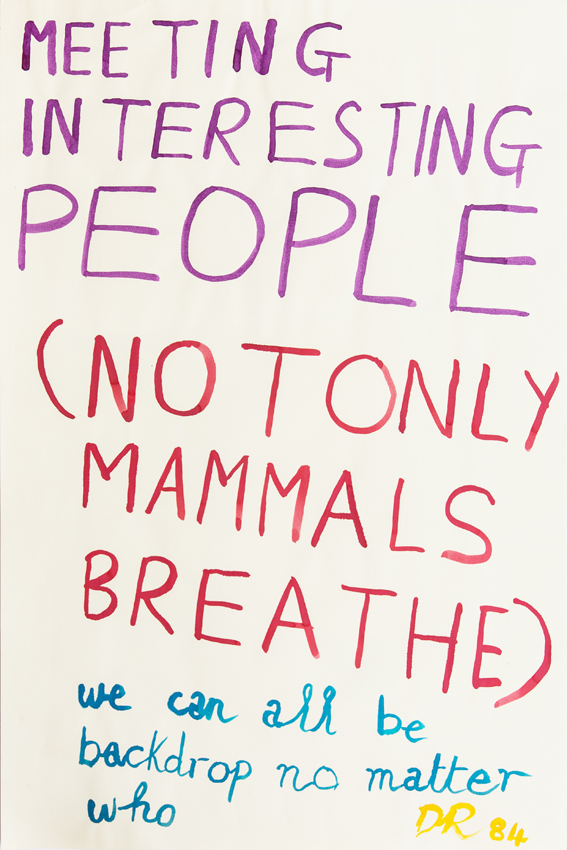 MEETING
INTERESTING
PEOPLE
(NOT ONLY
MAMMALS
BREATHE)
we can all be
backdrop no matter
who
DR 84